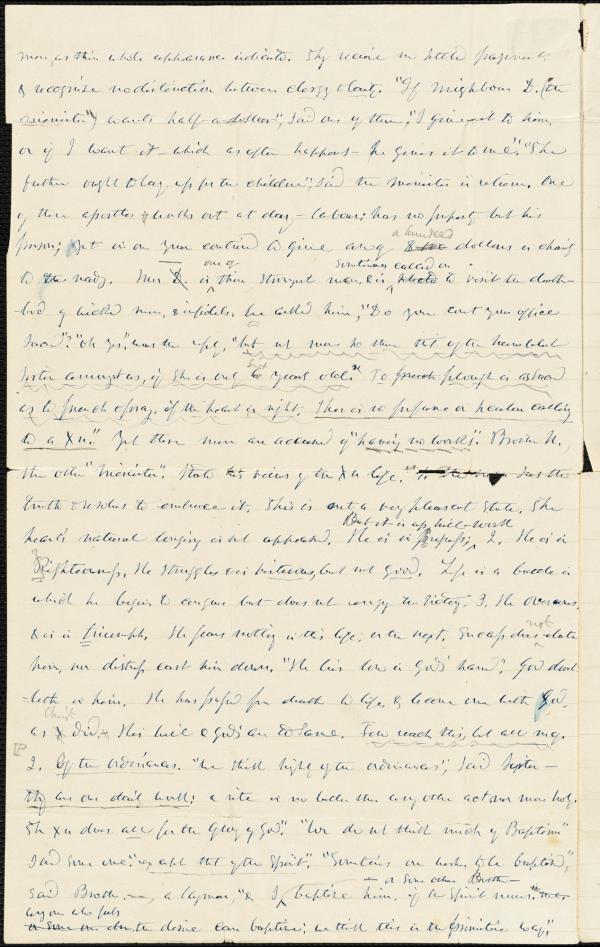 men, as their whole appearance indicate. They receive no settled payment,
& recognise no distinction between clergy & laity. "If Neighbour D. (the
minister") wants half-a-dollar", said one of them, "I give it to him,
or if I want it - which as often happens - he gives it to me". "The
father ought to lay up for the children", said the minister in return. One
of these apostles works out at day-labour; has no property but his
person; yet in one year contrived to give away a hundred dollars in charity
to the needy. Mrs D. is one of their strongest men, & is sometimes called on to visit the death-
bed of wicked men, & infidels. he called him, "Do you count your office
Sacred"? "Oh yes", was the reply, "but not more so than that of the humblest
Sister amongst us, if she is only six years old." To plough is as sacred
as to preach or pray, if the heart is right. There is no profane or heathen calling
to a Xn." Yet these men are accused of "having no works". Brother N.,
the other "minister", stated his views of the Xn life. sees the
truth & resolves to embrace it. This is not a very pleasant State. The
heart's natural longing is not appeased. He is in progress; But it is up-hill-work 2. He is in
Righteousness. He struggles & is virtuous, but not good. Life is a battle in
which he begins to conquer but does not enjoy the victory. 3. He overcomes,
& is in triumph. He fears nothing in this life, or the next. Success does not elate
him, nor distress cast him down. "He lies low in God's hand". God dwel-
leth in him. He has passed from death to life, & become one with God,
as Christ did. His will & God's are the same. Few reach this, but all may.
2. Of the ordinances. "We think highly of the ordinances", said Sister -
they are our daily walk; a rite is no better than any other act nor more holy.
The Xn does all for the Glory of God". "We do not think much of Baptism"
said some one, "except that of the Spirit". "Sometimes one wishes to be baptised",
said Brother -, a layman, "& I - or some other Brother - baptise him, if the Spirit moves."
any one who feels
the desire can baptise; we think this is the primitive way".